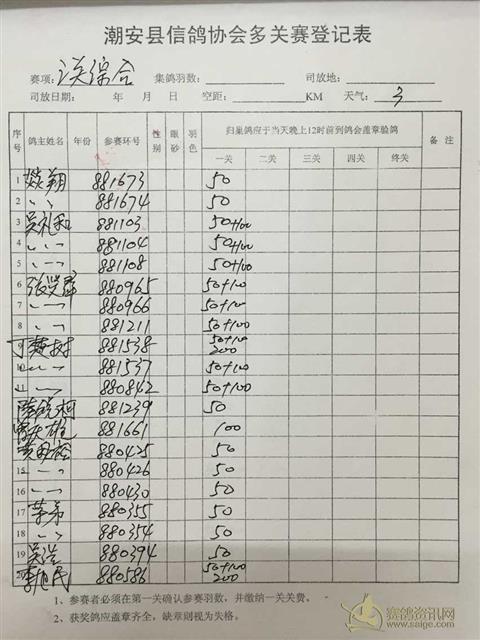 潮安县信鸽协会多关赛登记表
赛项: 综合 集鸽羽数: 司放地:
司放日期: 年 月 日 空距: KM 天气: 3
序号 鸽主姓名 年份 参赛环号 性别 眼砂 羽色 归巢鸽应于当天晚上12时前到鸽会盖章验鸽 备注
一关 二关 三关 四关 终关
1 翔 881673 50
2 〃 881674 50
3 吴礼和 881103 50+100
4 〃 881104 50+100
5 〃 881108 50+100
6 880965 50+100
7 〃 880966 50+100
8 〃 881211 50+100
9 树 881538 50+100 200
10 〃 881537 50+100
11 〃 880842 50+100
881239 50
881661 100
880425 50
15 〃 880426 50
16 〃 880430 50
17 880355 50
18 〃 880354 50
19 吴浩 880394 50
20 民 880586 50+100 200
1、参赛者必须在第一关确认参赛羽数,并缴纳一关关费。
2、获奖鸽应盖章齐全,缺章则视为失格。
赛鸽资讯网
www.saige.com